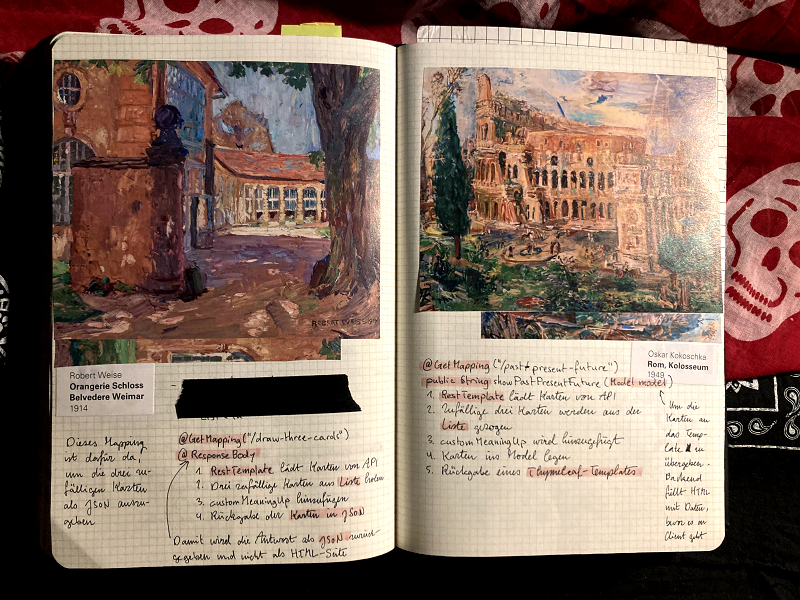 ROBERT WEISE 1914
Robert Weise
Orangerie Schloss
Belvedere Weimar
1914
Dieses Mapping
ist dafür da,
um die drei zu-
fälligen Karten
als JSON auszu-
geben
@GetMapping("/draw-three-cards")
@ResponseBody
1. RestTemplate lädt Karten von API
2. Drei zufällige Karten aus Liste holen
3. customMeaningUp hinzufügen
4. Rückgabe der Karten in JSON
Damit wird die Antwort als JSON zurück-
gegeben und nicht als HTML-Seite
Oskar Kokoschka
Rom, Kolosseum
1949
@GetMapping("/past-present-future")
public String showPastPresentFuture(Model model)
1. RestTemplate lädt Karten von API
2. Zufällige drei Karten werden aus der
Liste gezogen
3. customMeaningUp wird hinzugefügt
4. Karten ins Model legen
5. Rückgabe eines Thymeleaf-Templates
Um die
Karten an
das Temp-
late zu
übergeben.
Backend
füllt HTML
mit Daten,
bevor es an
Client geht